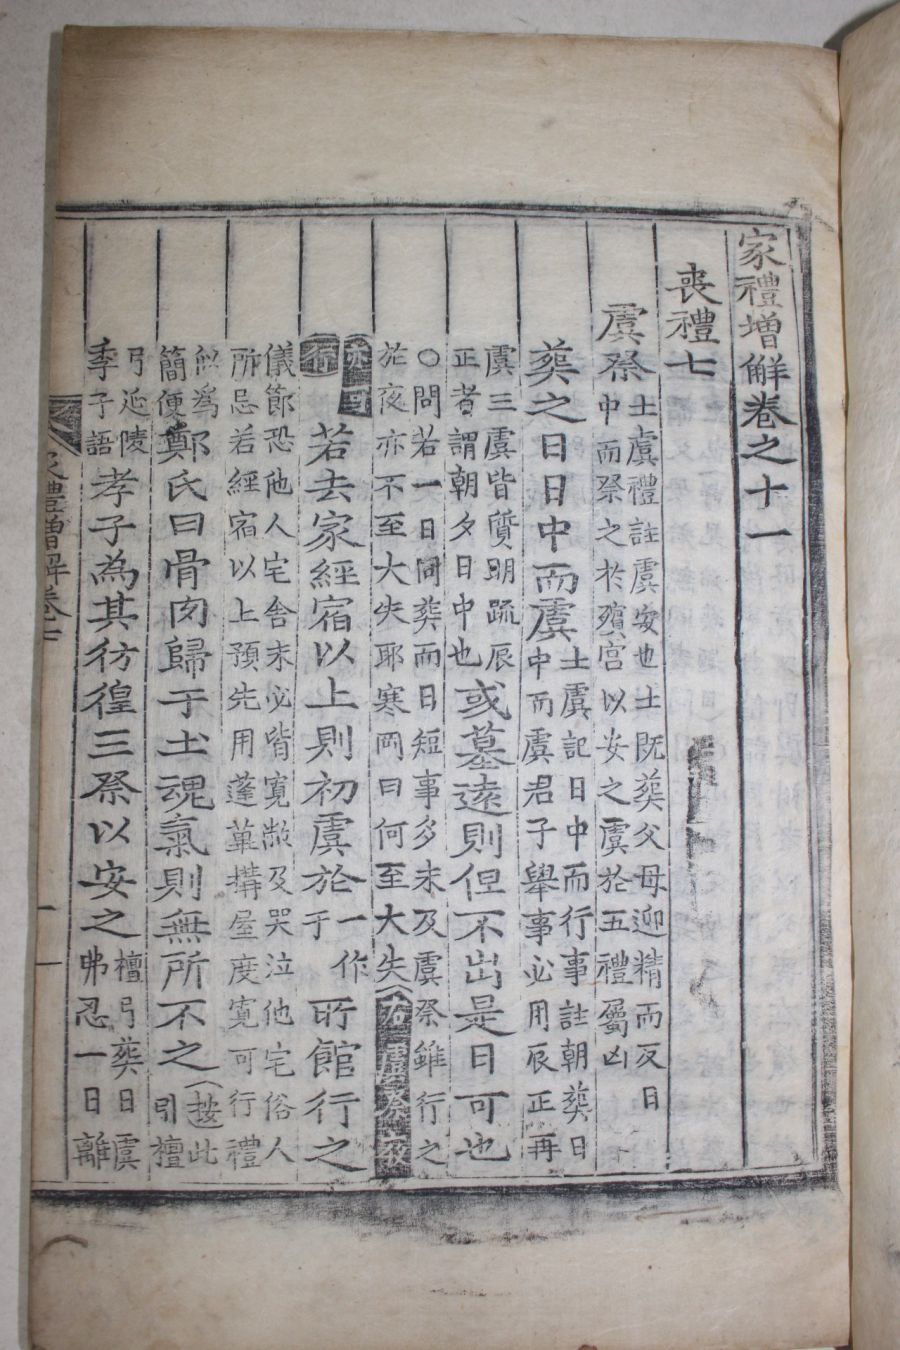 家禮增解卷之十一
喪禮七
虞祭士虞禮註虞安也士既葬父母迎精而反日中而祭之於殯宮以安之虞於五禮屬凶
葬之日日中而虞士虞記日中而行事註朝葬日中而虞君子舉事必用辰正再
虞三虞皆質明疏辰正者謂朝夕日中也或墓遠則但不出是日可也
○問若一日同葬而日短事多未及虞祭雖行之於夜亦不至大失耶寒岡曰何至大失
若去家經宿以上則初虞於一作于所館行之
儀節恐他人宅舍未必皆寬敞及哭泣他宅俗人所忌若經宿以上預先用蘧蓽搆屋度寬可行禮
似爲簡便鄭氏曰骨肉歸于土魂氣則無所不之(按此引檀
弓延陵季子語孝子為其彷徨三祭以安之檀弓葬日虞弗忍一日離
家禮增解卷十一